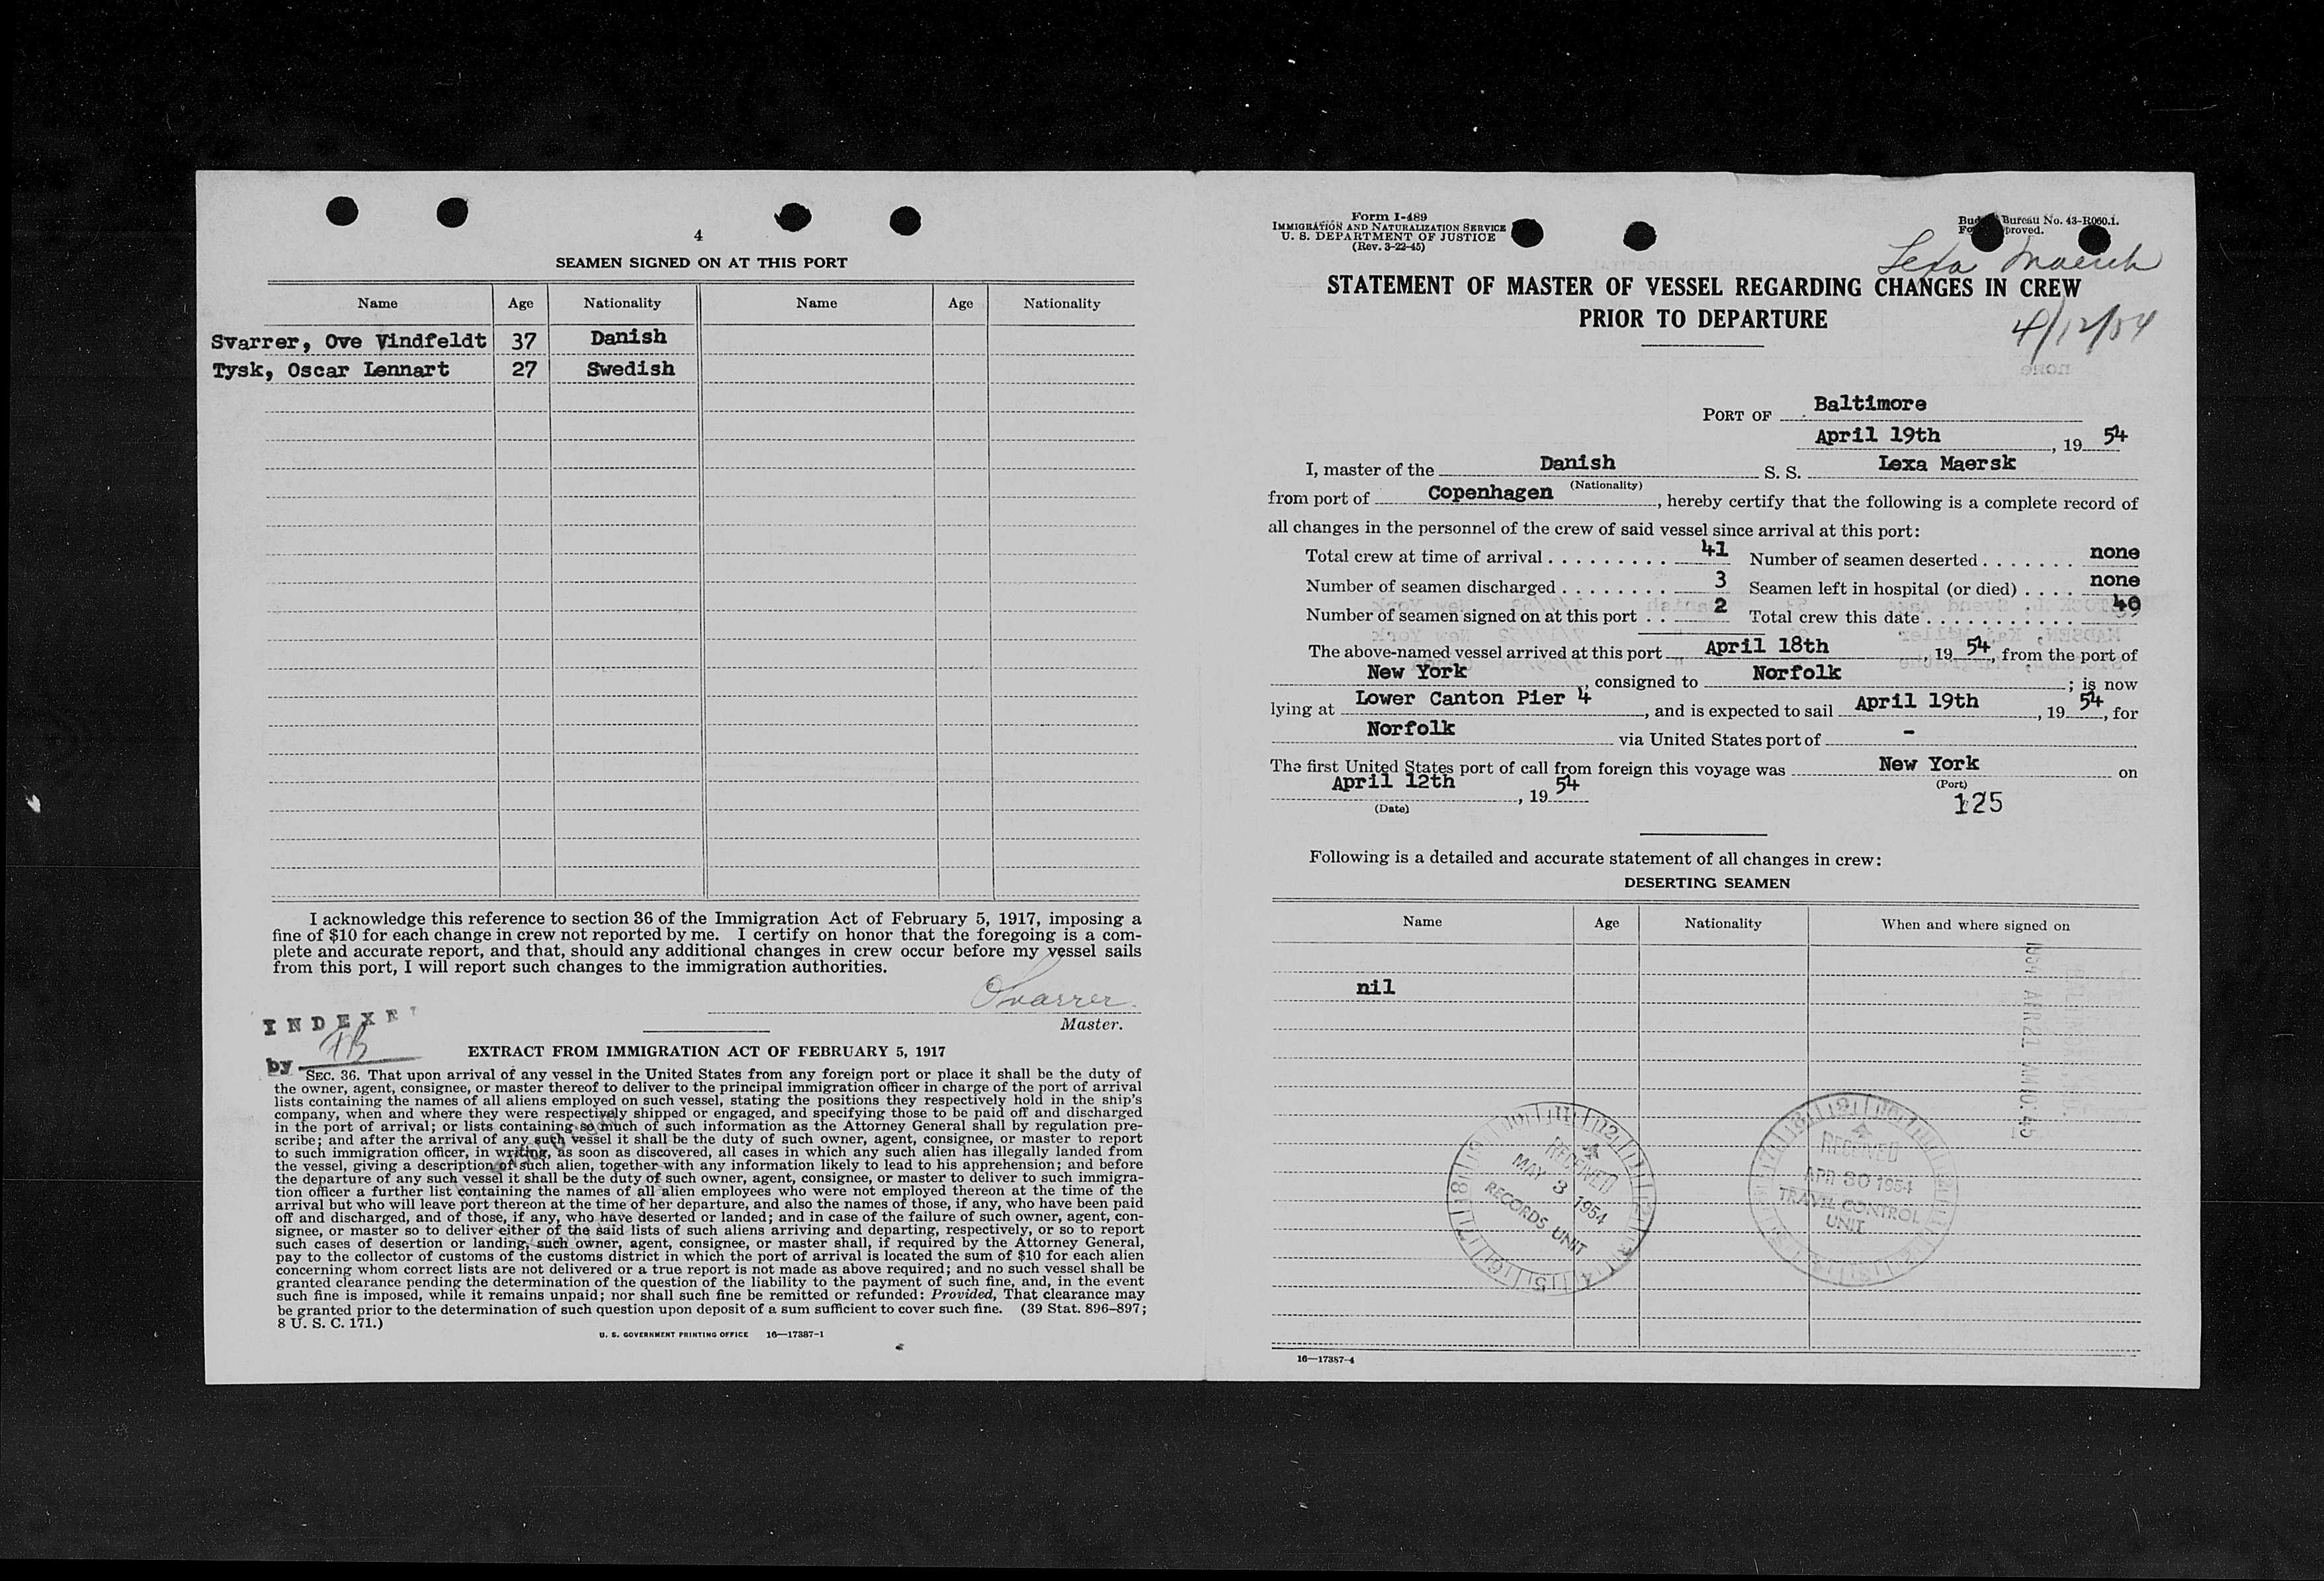 4
SEAMEN SIGNED ON AT THIS PORT
Name Age Nationality Name Age Nationality
Svarrer, Ove Vindfeldt 37 Danish
Tysk, Oscar Lennart 27 Swedish
I acknowledge this reference to section 36 of the Immigration Act of February 5, 1917, imposing a
fine of $10 for each change in crew not reported by me. I certify on honor that the foregoing is a com-
plete and accurate report, and that, should any additional changes in crew occur before my vessel sails
from this port, I will report such changes to the immigration authorities.
Svarrer.
Master.
INDEXE
by
EXTRACT FROM IMMIGRATION ACT OF FEBRUARY 5, 1917
SEC. 36. That upon arrival of any vessel in the United States from any foreign port or place it shall be the duty of
the owner, agent, consignee, or master thereof to deliver to the principal immigration officer in charge of the port of arrival
lists containing the names of all aliens employed on such vessel, stating the positions they respectively hold in the ship's
company, when and where they were respectively shipped or engaged, and specifying those to be paid off and discharged
in the port of arrival; or lists containing so much of such information as the Attorney General shall by regulation pre-
scribe; and after the arrival of any such vessel it shall be the duty of such owner, agent, consignee, or master to report
to such immigration officer, in writing, as soon as discovered, all cases in which any such alien has illegally landed from
the vessel, giving a description of such alien, together with any information likely to lead to his apprehension; and before
the departure of any such vessel it shall be the duty of such owner, agent, consignee, or master to deliver to such immigra-
tion officer a further list containing the names of all alien employees who were not employed thereon at the time of the
arrival but who will leave port thereon at the time of her departure, and also the names of those, if any, who have been paid
off and discharged, and of those, if any, who have deserted or landed; and in case of the failure of such owner, agent, con-
signee, or master so to deliver either of the said lists of such aliens arriving and departing, respectively, or so to report
such cases of desertion or landing, such owner, agent, consignee, or master shall, if required by the Attorney General,
pay to the collector of customs of the customs district in which the port of arrival is located the sum of $10 for each alien
concerning whom correct lists are not delivered or a true report is not made as above required; and no such vessel shall be
granted clearance pending the determination of the question of the liability to the payment of such fine, and, in the event
such fine is imposed, while it remains unpaid; nor shall such fine be remitted or refunded: Provided, That clearance may
be granted prior to the determination of such question upon deposit of a sum sufficient to cover such fine. (39 Stat. 896–897;
8 U. S. C. 171.)
U. S. GOVERNMENT PRINTING OFFICE 16—17387-1
Form I-489
IMMIGRATION AND NATURALIZATION SERVICE
U. S. DEPARTMENT OF JUSTICE
(Rev. 3-22-45)
Bureau No. 43-R060.1.
Lexa Maersk
STATEMENT OF MASTER OF VESSEL REGARDING CHANGES IN CREW
PRIOR TO DEPARTURE
4/12/54
PORT OF Baltimore
April 19th, 19 54
I, master of the Danish S. S. Lexa Maersk
(Nationality)
from port of Copenhagen, hereby certify that the following is a complete record of
all changes in the personnel of the crew of said vessel since arrival at this port:
Total crew at time of arrival . . . . . . . . . 41 Number of seamen deserted . . . . . . . none
Number of seamen discharged . . . . . . . . 3 Seamen left in hospital (or died) . . . . none
Number of seamen signed on at this port . . 2 Total crew this date . . . . . . . . . . . . 40
The above-named vessel arrived at this port April 18th, 19 54, from the port of
New York, consigned to Norfolk; is now
lying at Lower Canton Pier 4, and is expected to sail April 19th, 19 54, for
Norfolk via United States port of -
The first United States port of call from foreign this voyage was New York on
(Port)
April 12th, 19 54
(Date)
125
Following is a detailed and accurate statement of all changes in crew:
DESERTING SEAMEN
Name Age Nationality When and where signed on
nil
1954 APR 21 AM 10:45
RECEIVED
MAY 3 1954
RECORDS UNIT
RECEIVED
APR 30 1954
TRAVEL CONTROL
UNIT
16—17387-4